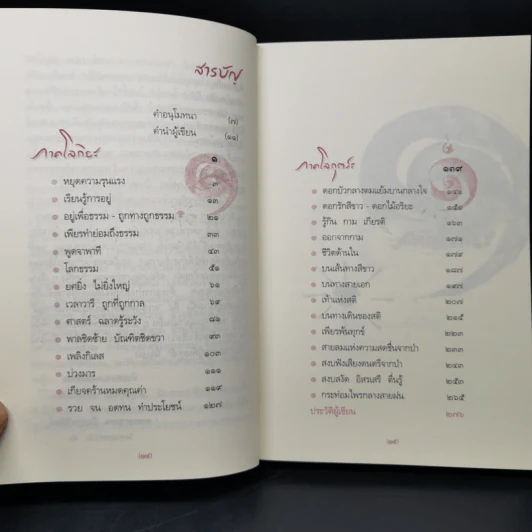 สารบัญ
คำอนุโมทนา (๗)
คำนำผู้เขียน (๑๑)
ภาคโลกียะ ๑
หยุดความรุนแรง ๓
เรียนรู้การอยู่ ๑๓
อยู่เพื่อธรรม - ถูกทางถูกธรรม ๒๑
เพียรทำย่อมถึงธรรม ๓๓
พูดจาพาที ๔๓
โลกธรรม ๕๑
ยศยิ่ง ไม่ยิ่งใหญ่ ๖๑
เวลาวารี ถูกที่ถูกกาล ๖๙
ศาสตร์ ฉลาดรู้ระวัง ๘๑
พาลชิดซ้าย บัณฑิตชิดขวา ๙๓
เพลิงกิเลส ๑๐๓
บ่วงมาร ๑๑๑
เกียจคร้านหมดคุณค่า ๑๑๙
รวย จน อดทน ทำประโยชน์ ๑๒๗
ภาคโลกุตระ ๑๓๙
ดอกบัวกลางตมแย้มบานกลางใจ ๑๔๑
ดอกรักสีขาว - ดอกไม้อริยะ ๑๕๑
รู้กิน กาม เกียรติ ๑๖๓
ออกจากกาม ๑๗๑
ชีวิตด้านใน ๑๗๙
บนเส้นทางสีขาว ๑๘๗
บนทางสายเอก ๑๙๗
เท้าแห่งสติ ๒๐๗
บนทางเดินของสติ ๒๑๕
เพียรพ้นทุกข์ ๒๒๓
สายลมแห่งความสดชื่นจากป่า ๒๓๓
สงบฟังเสียงดนตรีจากป่า ๒๔๓
สงบสงัด อิสรเสรี ตื่นรู้ ๒๕๓
กระท่อมไพรกลางสายฝน ๒๖๕
ประวัติผู้เขียน ๒๗๖